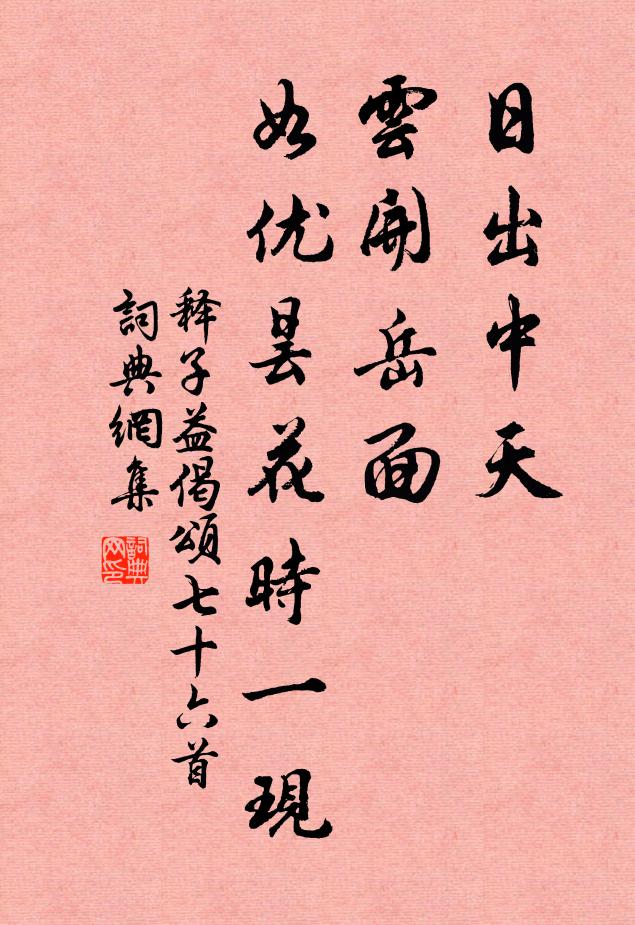 日出中天
雲開岳面
如优昙花時一現
释子益偈頌七十六首
詞典網集
詞典网印